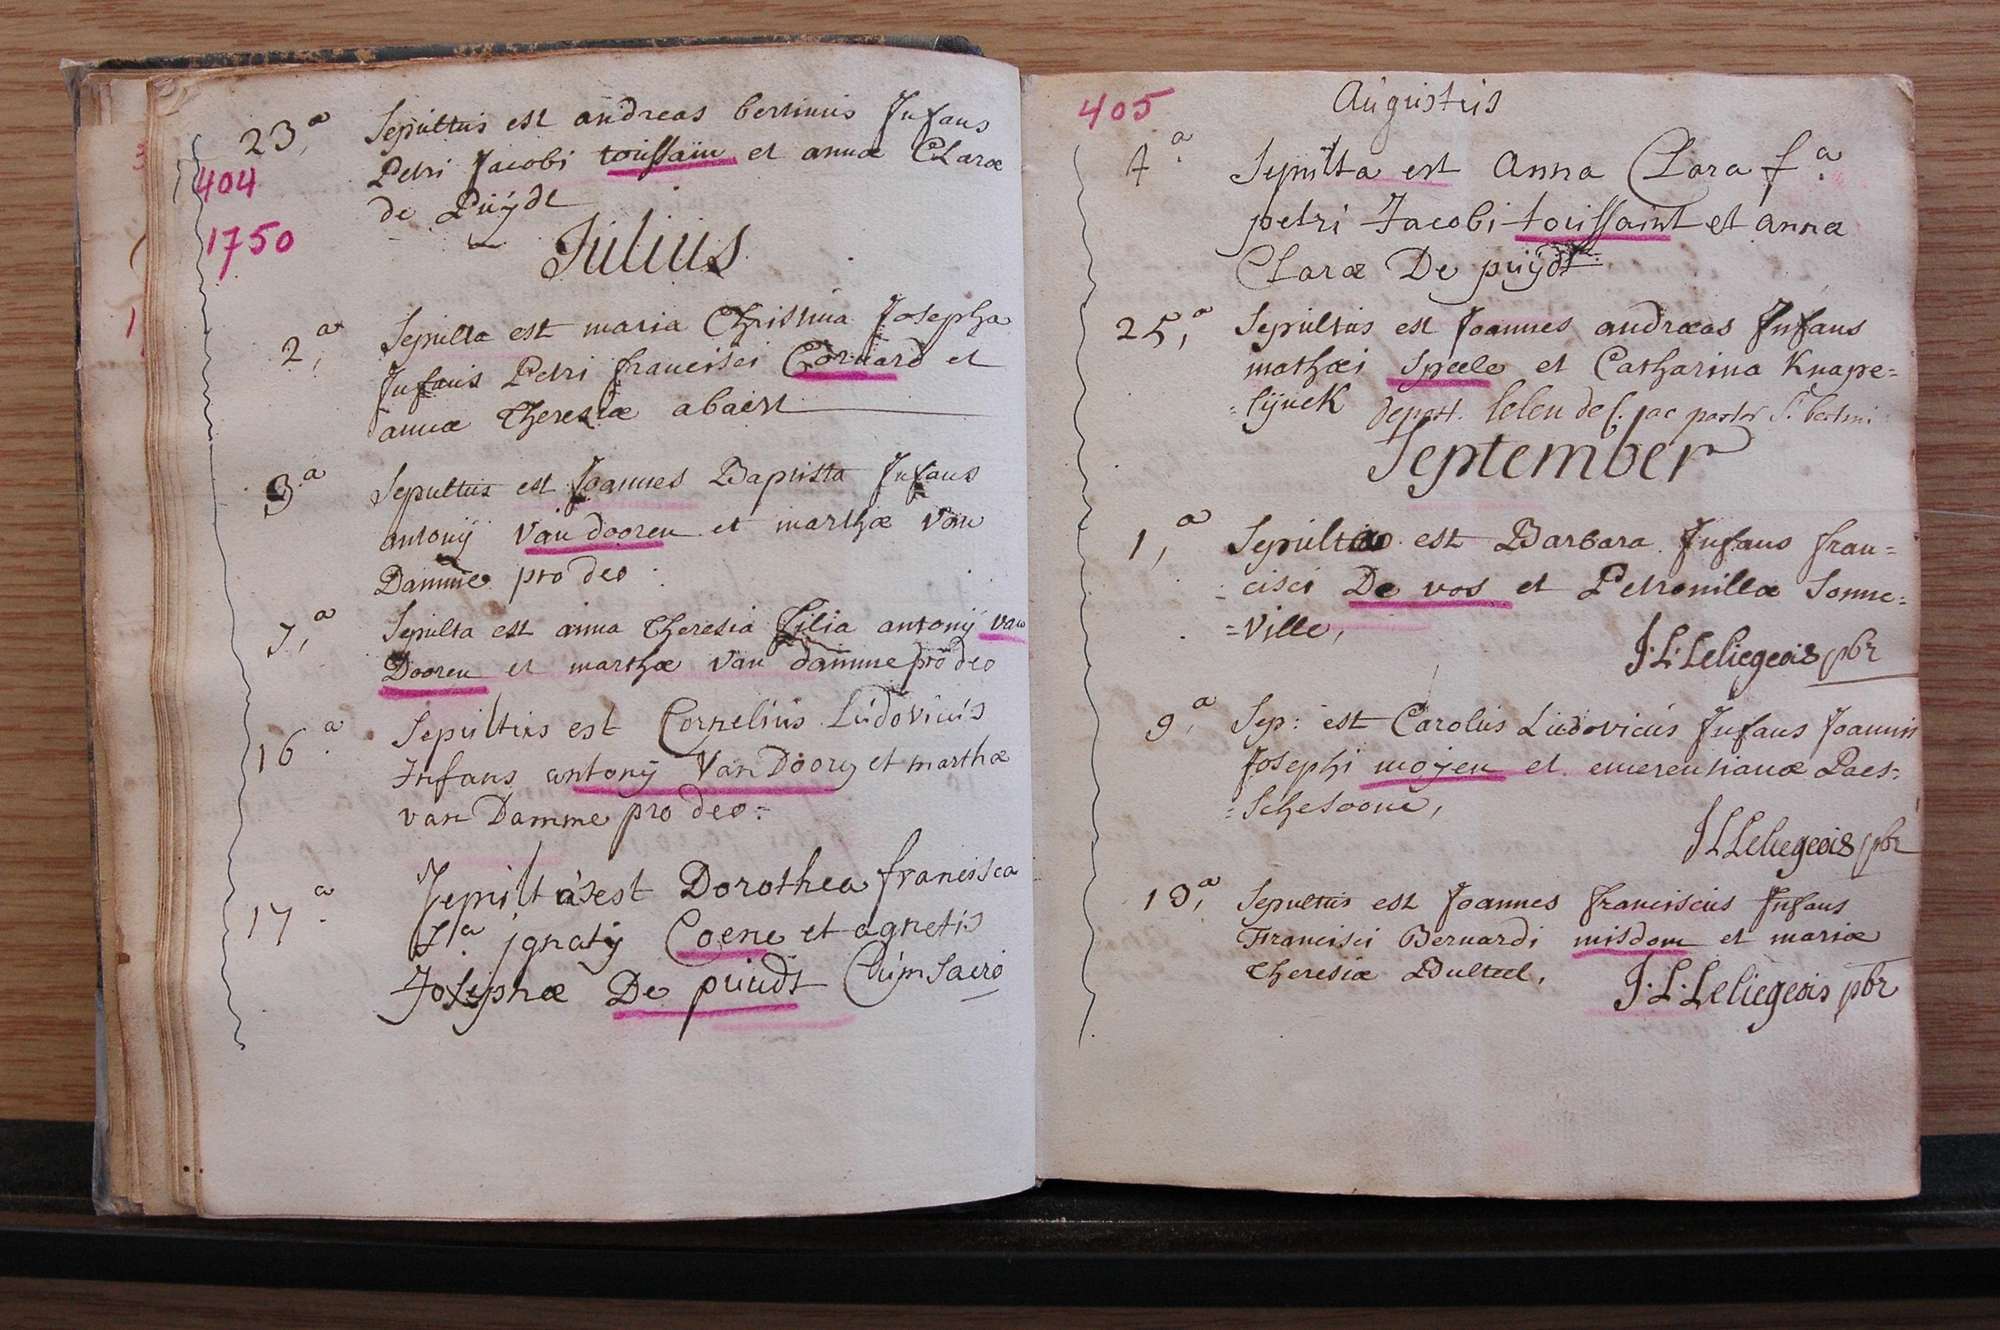 23,a Sepultus est andreas bertinus Infans
404 Petri Jacobi toussain et annæ Claræ
de Puÿdt
1750
Julius
2,a Sepulta est maria Christina Josepha
Infans Petri francisci Cornard et
annæ Theresiæ abaert
3.a Sepultus est Joannes Baptista Infans
antonij Van dooren et marthæ Van
Damme pro deo
7,a Sepulta est anna Theresia filia antonij van
Dooren et marthæ van damme pro deo
16.a Sepultus est Cornelius Ludovicus
Infans antonij Van Dooren et marthæ
van Damme pro deo:
17.a Sepulta est Dorothea francisca
f.a ignatij Coene et agnetis
Josephæ De puudt Cum sacro
405 Augustus
4.a Sepulta est Anna Clara f.a
petri Jacobi toussaint et anna
Claræ De puÿdt
25,a Sepultus est Joannes andræas Infans
mathæi Speele et Catharina Knape=
=lijnck depost. pastor S.t bertini
September
1,a Sepulta est Barbara Infans fran=
=cisci De vos et Petronillæ Sonne=
=ville,
J.L.Leliegeois pbr
9,a Sep: est Carolus Ludovicus Infans Joannis
Josephi moÿen et emerentianæ Paes=
=schesoone,
J L Leliegeois pbr
13,a Sepultus est Joannes franciscus Infans
Francisci Bernardi misdom et mariæ
Theresiæ Bulteel,
J.L.Leliegeois pbr